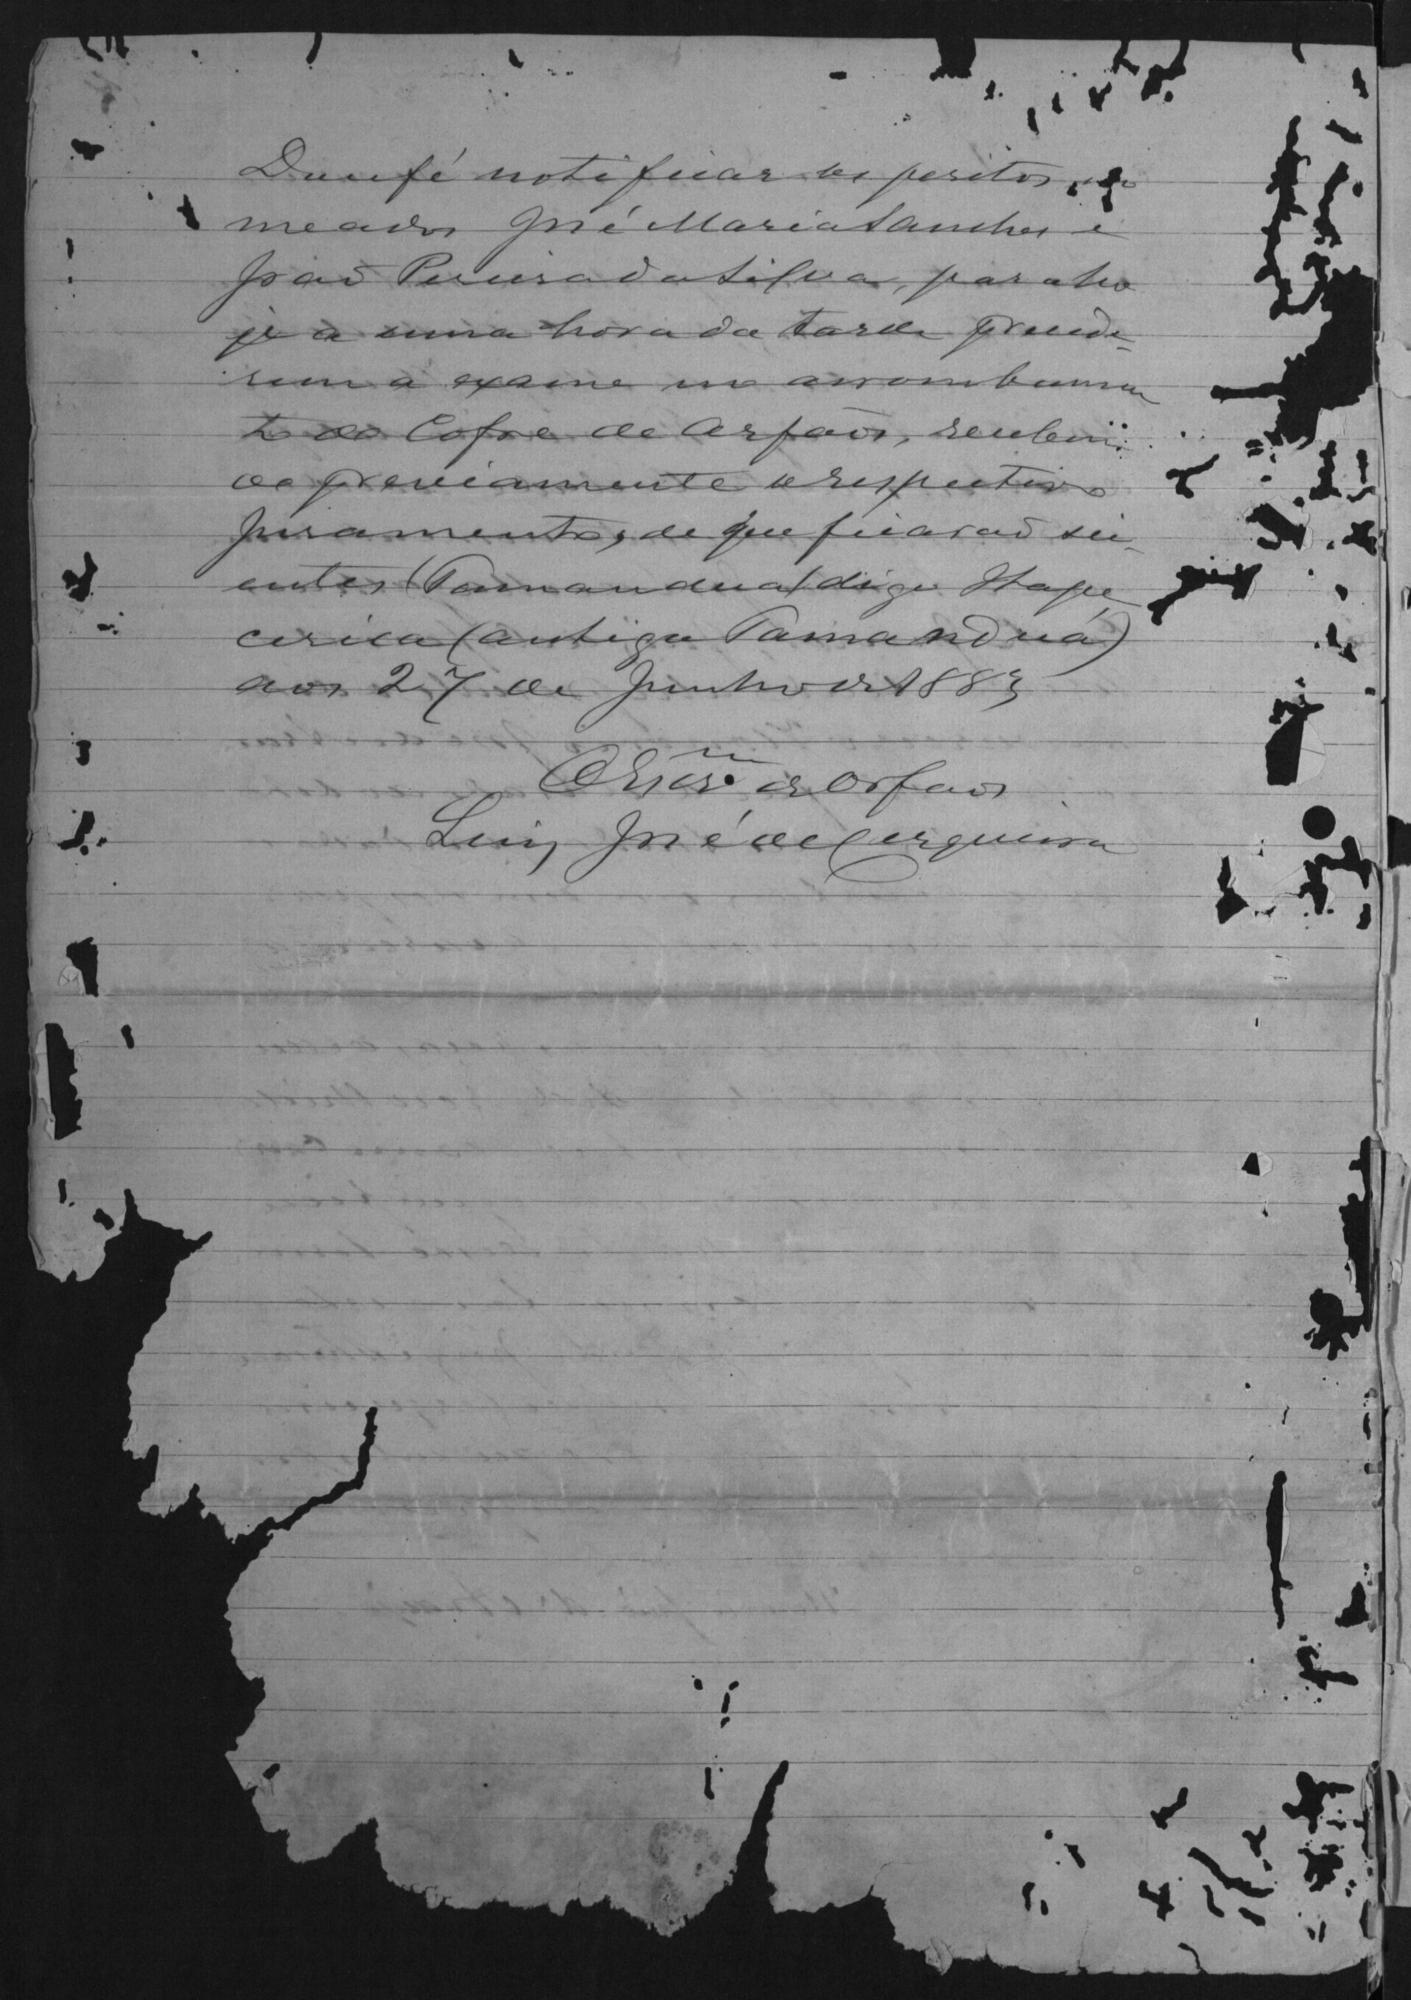 Dou fé notificar os peritos no
meados José Maria Sanches e
João Pereira da Silva, para ho
je a uma hora da tarde procede-
rem a exame no arrombamen
to do Cofre de Orfaõs, receben
do previamente o respectivo
juramento, de que ficaraõ sci-
entes (Tamandua) digo Itape
cerica (antiga Tamanduá)
aos 27 de Junho de 1883
O Escr.m de Orfaos
Luiz José de Cerqueira